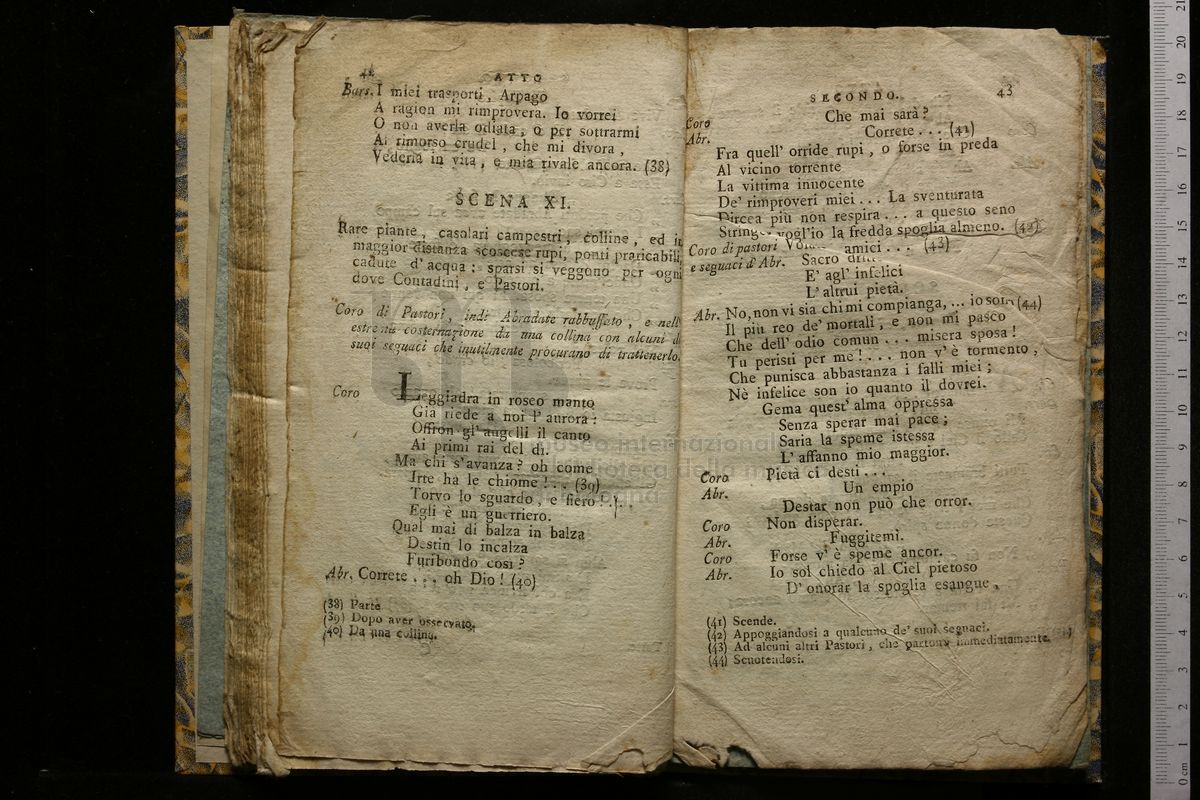 42
ATTO
Bars. I miei trasporti, Arpago
A ragion mi rimprovera. Io vorrei
O non averla odiata, o per sottrarmi
Al rimorso crudel, che mi divora,
Vederla in vita, e mia rivale ancora. (38)
SCENA XI.
Rare piante, casolari campestri, colline, ed in
maggior distanza scoscese rupi, ponti praticabili
cadute d'acqua: sparsi si veggono per ogni
dove Contadini, e Pastori.
Coro di Pastori, indi Abradate rabbuffato, e nell'
estrema costernazione da una collina con alcuni di
suoi seguaci che inutilmente procurano di trattenerlo.
Coro Leggiadra in roseo manto
Gia riede a noi l'aurora:
Offron gl'augelli il canto
Ai primi rai del dì.
Ma chi s'avanza? oh come
Irte ha le chiome!.. (39)
Torvo lo sguardo, e fiero!...
Egli è un guerriero.
Qual mai di balza in balza
Destin lo incalza
Furibondo così?
Abr. Correte... oh Dio! (40)
(38) Parte
(39) Dopo aver osservato.
(40) Da una collina.
SECONDO.
43
Coro Che mai sarà?
Abr. Correte... (41)
Fra quell'orride rupi, o forse in preda
Al vicino torrente
La vittima innocente
De' rimproveri miei... La sventurata
Dircea più non respira... a questo seno
Stringer vogl'io la fredda spoglia almeno. (42)
amici... (43)
Coro di pastori
e seguaci d'Abr. Sacro
E' agl'infelici
L'altrui pietà.
Abr. No, non vi sia chi mi compianga,... io son (44)
Il più reo de' mortali, e non mi pasco
Che dell'odio comun... misera sposa!
Tu peristi per me!... non v'è tormento,
Che punisca abbastanza i falli miei;
Nè infelice son io quanto il dovrei.
Gema quest'alma oppressa
Senza sperar mai pace;
Saria la speme istessa
L'affanno mio maggior.
Coro Pietà ci desti...
Abr. Un empio
Destar non può che orror.
Coro Non disperar.
Abr. Fuggitemi.
Coro Forse v'è speme ancor.
Abr. Io sol chiedo al Ciel pietoso
D'onorar la spoglia esangue,
(41) Scende.
(42) Appoggiandosi a qualcuno de' suoi seguaci.
(43) Ad alcuni altri Pastori, che partono immediatamente.
(44) Scuotendosi.